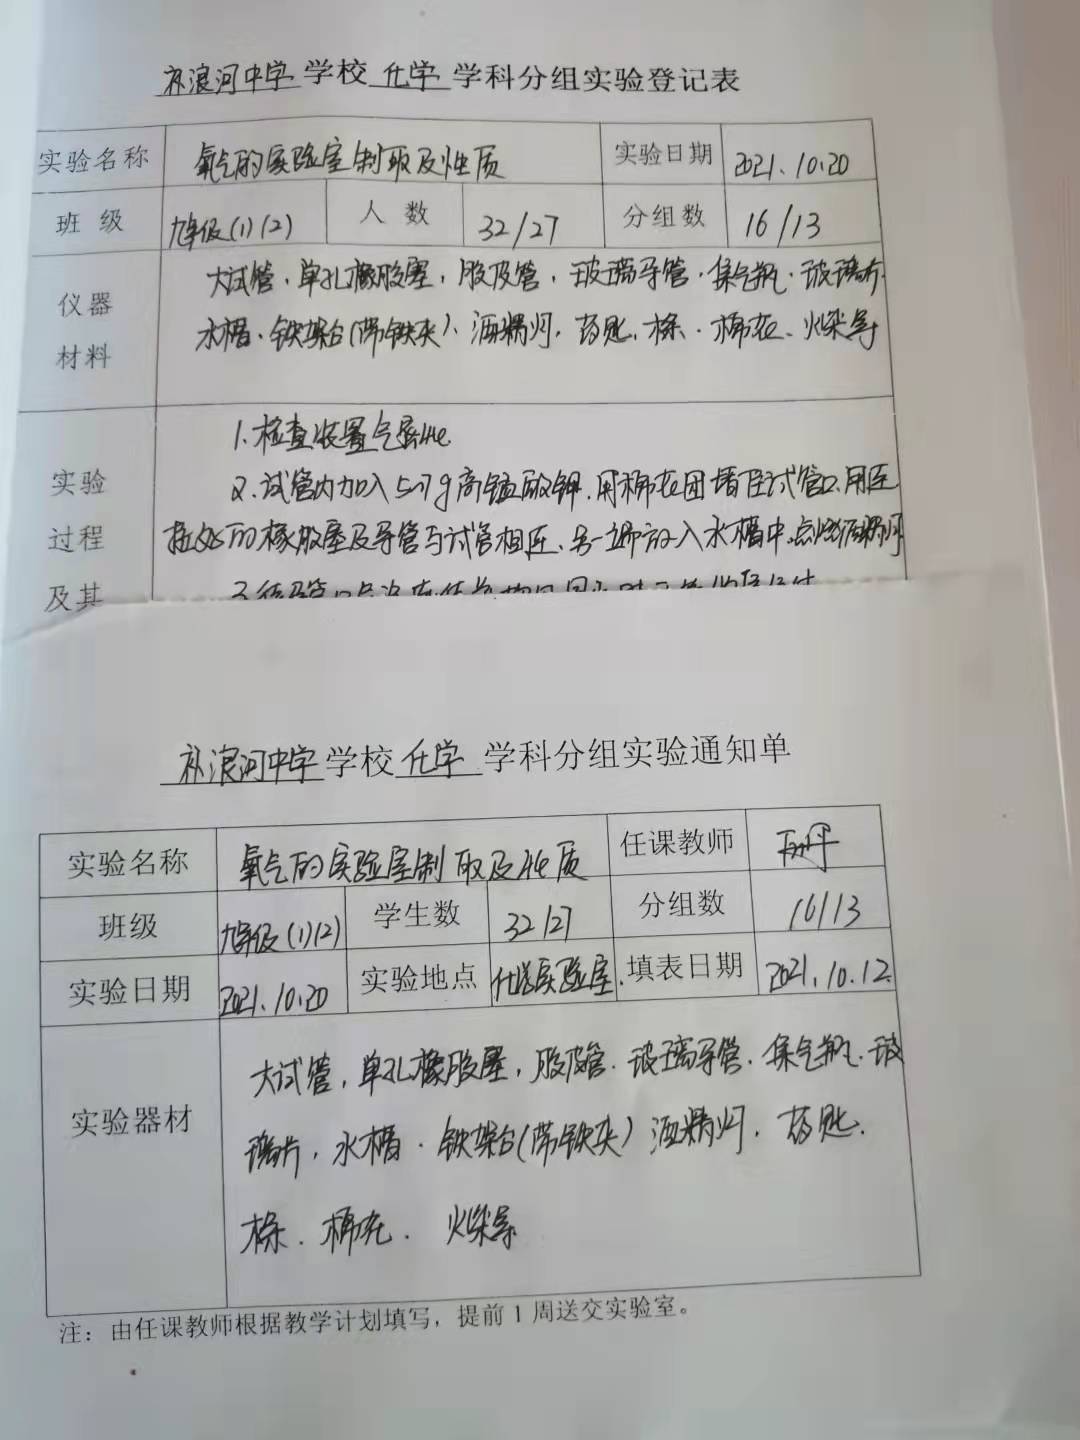 补浪河中学 学校 化学 学科分组实验登记表
实验名称 氧气的实验室制取及性质 实验日期 2021.10.20
班 级 九年级(1)(2) 人 数 32/27 分组数 16/13
仪器
材料
大试管、单孔橡胶塞,胶皮管,玻璃导管、集气瓶、玻璃片、
水槽、铁架台(带铁夹)、酒精灯,药匙、 棉花、火柴等
实验
过程
及其
1.检查装置气密性
2.试管内加入5~7g高锰酸钾.用棉花团堵住试管口.用连
接处的橡胶塞及导管与试管相连、另一端放入水槽中.点燃酒精灯
补浪河中学 学校 化学 学科分组实验通知单
实验名称 氧气的实验室制取及性质 任课教师
班级 九年级(1)(2) 学生数 32/27 分组数 16/13
实验日期 2021.10.20 实验地点 化学实验室. 填表日期 2021.10.12
实验器材
大试管,单孔橡胶塞,胶皮管.玻璃导管.集气瓶.玻
璃片,水槽.铁架台(带铁夹)酒精灯.药匙.
棉花. 火柴等
注：由任课教师根据教学计划填写，提前1周送交实验室。